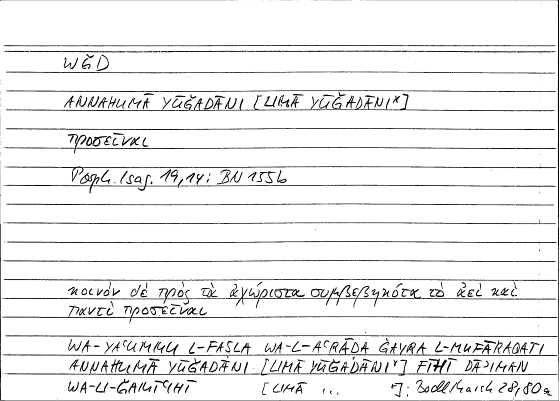 WǦD
ANNAHUMĀ YŪǦADĀNI [LIMĀ YŪǦADĀNI*]
προσεῖναι
Porph. Isag. 19,14: BN 155b
κοινὸν δὲ πρὸς τὰ ἀχώριστα συμβεβηκότα τὸ ἀεὶ καὶ
παντὶ προσεῖναι
WA-YAʿUMMU L-FAṢLA WA-L-AʿRĀḌA ĠAYRA L-MUFĀRAQATI
ANNAHUMĀ YŪǦADĀNI [LIMĀ YŪǦADĀNI*] FĪHĪ DĀʾIMAN
WA-LI-ǦAMĪʿIHĪ [LIMĀ ... *]: Bodl Marsh 28,80a